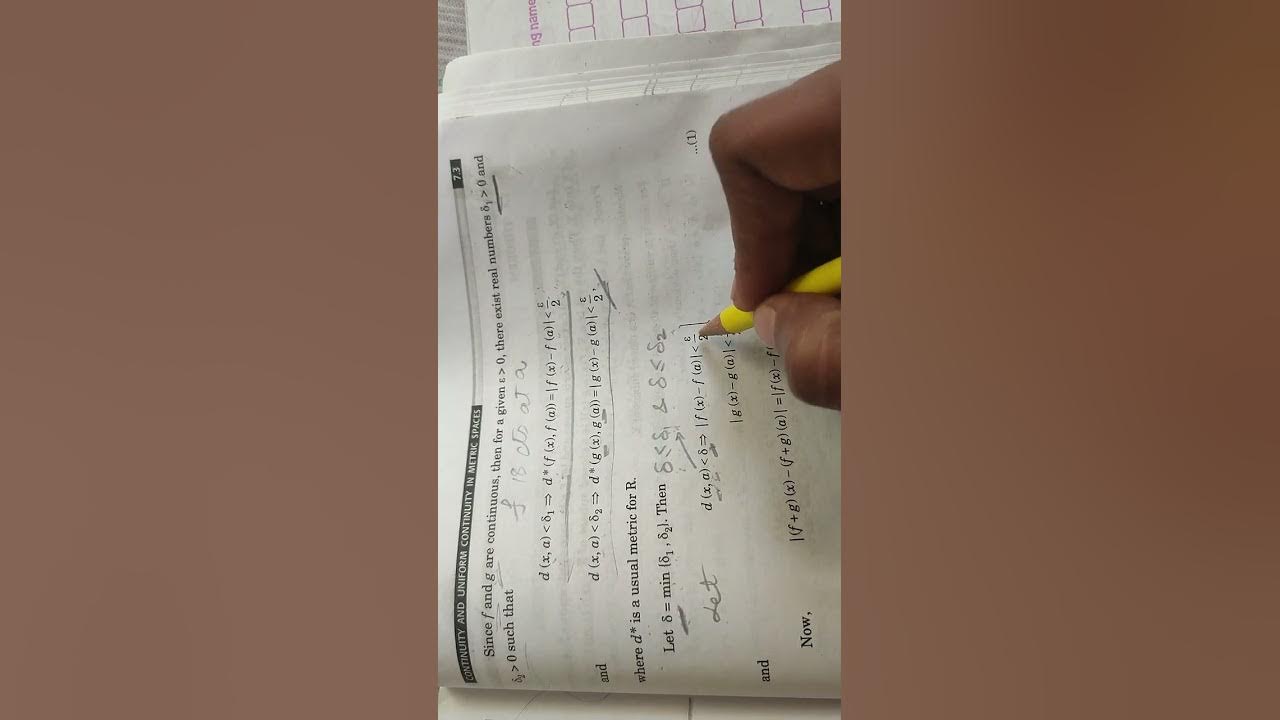 ng name
CONTINUITY AND UNIFORM CONTINUITY IN METRIC SPACES 7.3
Since f and g are continuous, then for a given ε > 0, there exist real numbers δ₁ > 0 and
δ₂ > 0 such that
f is cts at a
d (x, a) < δ₁ ⇒ d* (f (x), f (a)) = | f (x) – f (a) | < ε/2
and d (x, a) < δ₂ ⇒ d* (g (x), g (a)) = | g (x) – g (a) | < ε/2,
where d* is a usual metric for R.
Let δ = min {δ₁ , δ₂}. Then δ ≤ δ₁ & δ ≤ δ₂
Let d (x, a) < δ ⇒ | f (x) – f (a) | < ε/2 ...(1)
and | g (x) – g (a) | <
Now, | (f + g) (x) – (f + g) (a) | = | f (x) – f